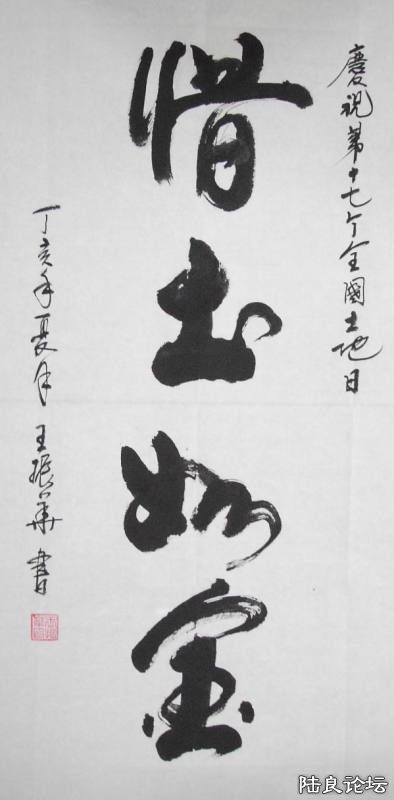 慶祝第十七个全國土地日
惜土如金
丁亥年夏月 王振華書
陆良论坛